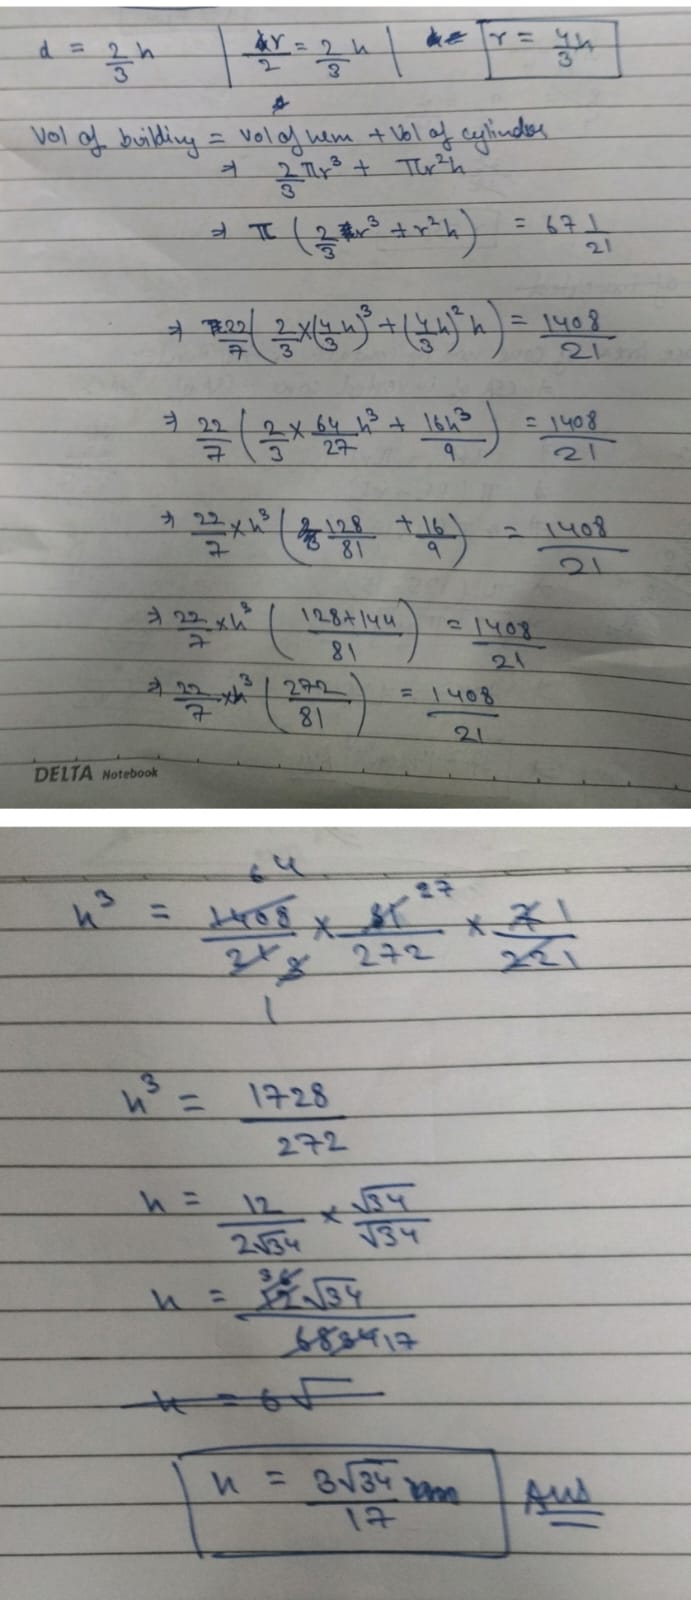 d = 2/3 h | r/2 = 2/3 h | r = 4h/3
Vol of building = Vol of hem + Vol of cylinder
⇒ 2/3 πr³ + πr²h
⇒ π ( 2/3 r³ + r²h ) = 67 1/21
⇒ 22/7 ( 2/3 × (4/3 h)³ + (4/3 h)² h ) = 1408/21
⇒ 22/7 ( 2/3 × 64/27 h³ + 16h³/9 ) = 1408/21
⇒ 22/7 × h³ ( 128/81 + 16/9 ) = 1408/21
⇒ 22/7 × h³ ( 128+144/81 ) = 1408/21
⇒ 22/7 × h³ ( 272/81 ) = 1408/21
DELTA Notebook
64
h³ = 1408/21 3 × 81 27/272 × 7 1/22 1
1
h³ = 1728/272
h = 12/2√34 × √34/√34
h = 12 36 √34/68 34 17
h = 6√
h = 3√34/17 Ans